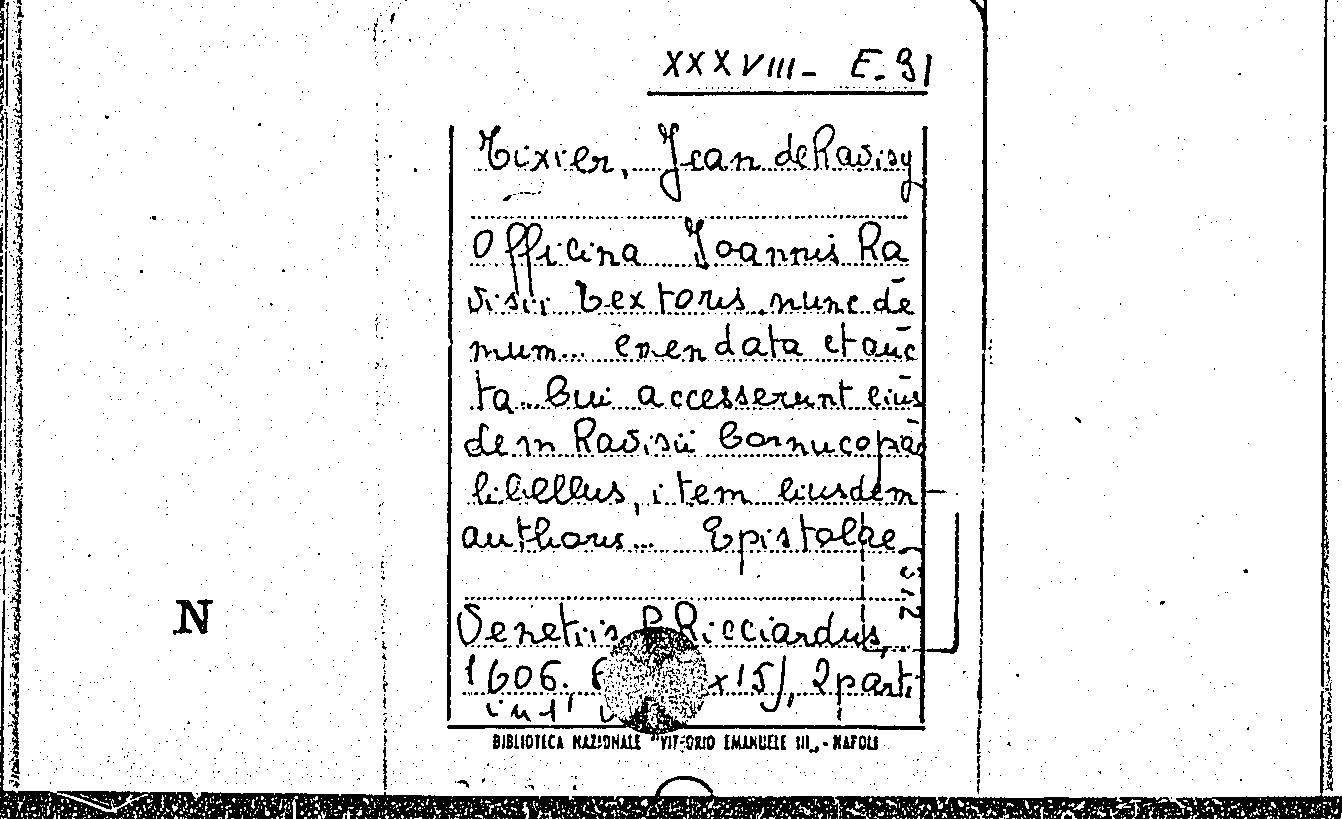 XXXVIII - E. 31
Tixier, Jean de Ravisy
Officina Joannis Ra
visii Textoris nunc de
mum... emendata et auc
ta... Cui accesserunt eius
dem Ravisii Cornucopiae
libellus, item eiusdem
authoris... Epistolae
Venetiis P. Ricciardus,
1606. x 15), 2 parti
in 1
N
BIBLIOTECA NAZIONALE "VITTORIO EMANUELE III" - NAPOLI